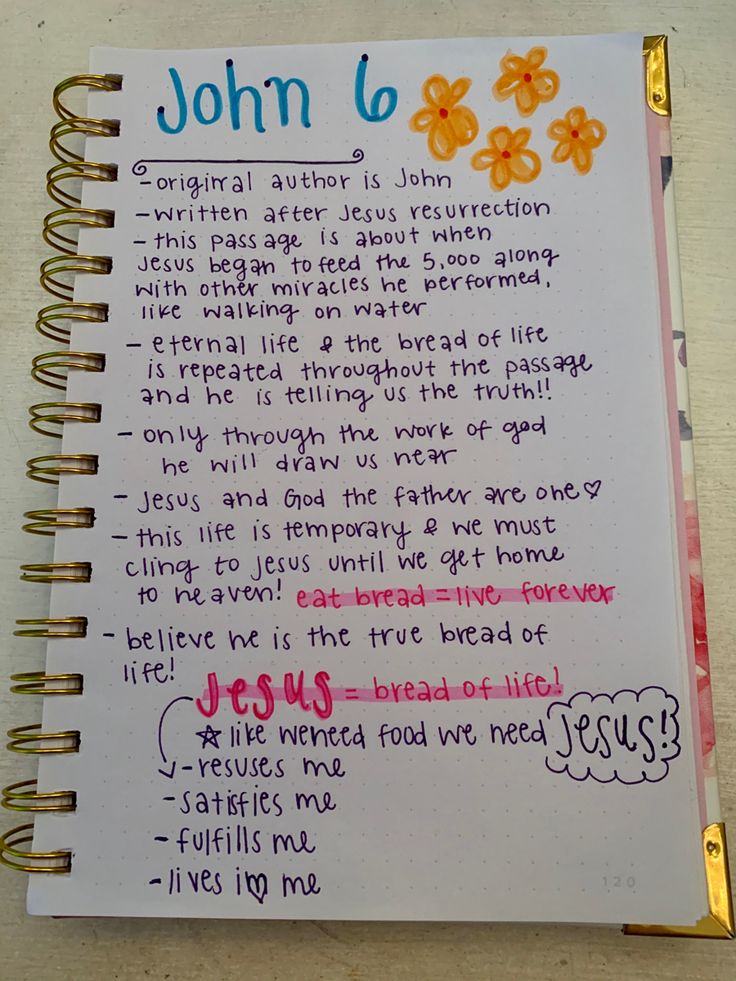 John 6
- origirral author is John
- written after Jesus resurrection
- this passage is about when
Jesus began to feed the 5,000 along
with other miracles he performed,
like walking on water
- eternal life & the bread of life
is repeated throughout the passage
and he is telling us the truth!!
- only through the work of god
he will draw us near
- Jesus and God the father are one♡
- this life is temporary & we must
cling to Jesus until we get home
to heaven! eat bread = live forever
- believe he is the true bread of
life!
Jesus = bread of life!
☆ like weneed food we need Jesus!
- resuses me
- satisfies me
- fulfills me
- lives in♡ me
120